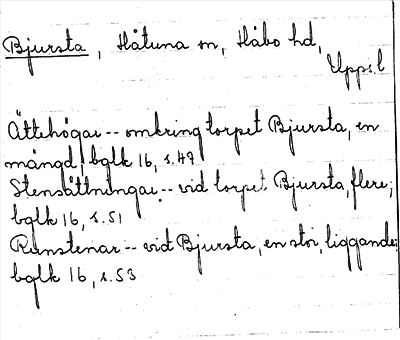 Bjursta, Håtuna sn, Håbo hd,
Uppl
Ättehögar -- omkring torpet Bjursta, en
mängd; bglk 16, s.49
Stensättningar -- vid torpet Bjursta, flere;
bglk 16, s.51
Runstenar -- vid Bjursta, en stor, liggande;
bglk 16, s.53